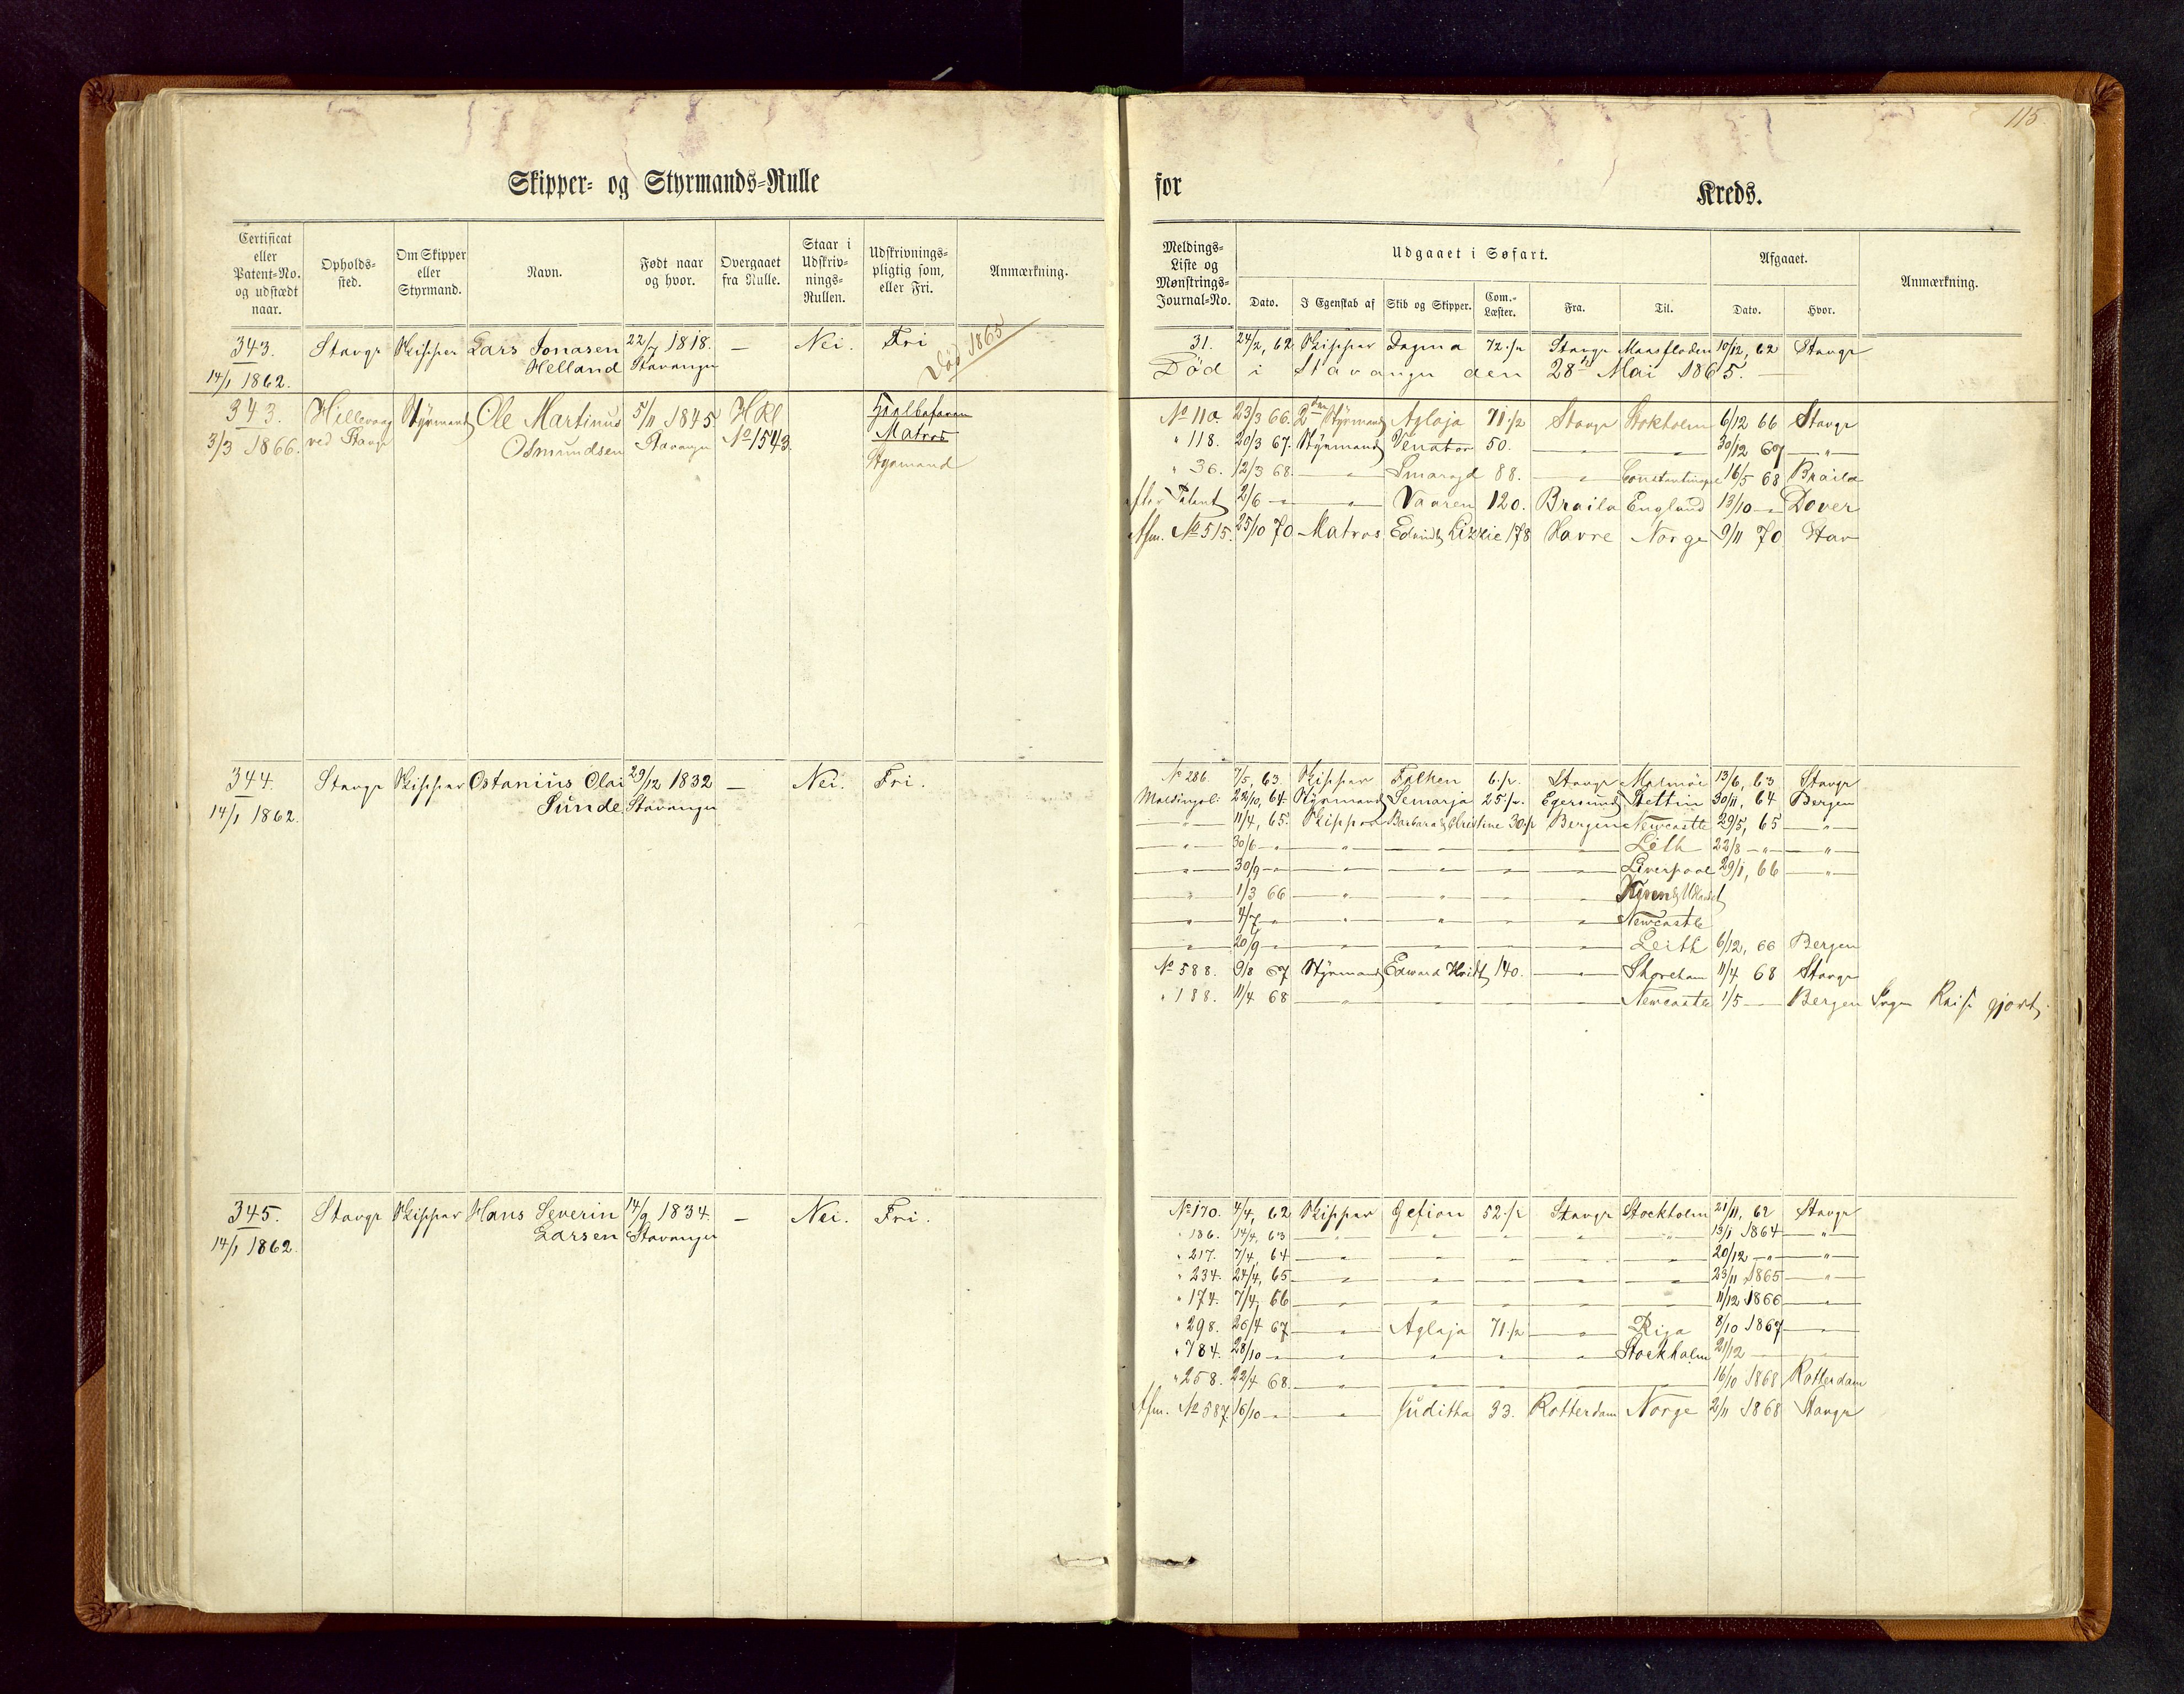 115.
Skipper- og Styrmands-Rulle
for Kreds.
Certificat eller Patent-No. og udstædt naar.
Opholds-sted.
Om Skipper eller Styrmand.
Navn.
Født naar og hvor.
Overgaaet fra Rulle.
Staar i Udskriv-nings-Rullen.
Udskrivnings-pligtig som, eller Fri.
Anmærkning.
Meldings-Liste og Mønstrings-Journal-No.
Udgaaet i Søfart.
Dato.
I Egenskab af
Skib og Skipper.
Com.-Læster.
Fra.
Til.
Afgaaet.
Dato.
Hvor.
Anmærkning.
343. Stavgr Skipper Lars Jonasen 22/7 1818. — Nei. Fri Død 1865
14/1 1862. Helland Stavanger
31. 24/2, 62 Skipper Dagma 72 1/2 Stavgr Maasfloden 10/12, 62 Stavgr
Død i Stavanger den 28de Mai 1865. —
343. Hillevaag Styrmand Ole Martinus 5/11 1845 HRl
3/3 1866. ved Stavgr Osmundsen Stavanger No 1543.
Matros
Styrmand
No 110. 23/3 66. 2den Styrmand Aglaja 71 1/2 Stavgr Stokholm 6/12 66 Stavgr
" 118. 20/3 67. Styrmand Venator 50. — " — — " — 30/12 67 — " —
" 36. 12/3 68. — " — Smaragd 88. — " — 16/5 68 Braila
efter Patent 2/6 — " — — " — Vaaren 120. Braila England 13/10 — " — Dover
Afm. No 515. 25/10 70 Matros Lizzie 178 Havre Norge 9/11 70 Stav
344. Stavgr Skipper Ostanius Olai 29/12 1832 — Nei. Fri.
14/1 1862. Sunde Stavanger
No 286. 7/5, 63 Skipper Falken 6 1/2. Stavgr Malmöe 13/6, 63 Stavgr
Meldingsl: 22/10, 64. Styrmand Semarja 25 1/2. Egersund Stettin 30/11, 64 Bergen
— " — 11/4, 65. Skipper Barbara Christine 30 1/2 Bergen Newcastle 29/5, 65 — " —
— " — 30/6 — " — — " — — " — — " — — " — Leth 22/8 — " — — " —
— " — 30/9 — " — — " — — " — — " — — " — Liverpool 29/1, 66 — " —
— " — 1/3 66 — " — — " — — " — — " —
— " — 4/7 — " — — " — — " — — " — — " — Newcastle
— " — 20/9 — " — — " — — " — — " — — " — Leith 6/12, 66 Bergen
No 588. 9/8 67 Styrmand Edward Hvidt 140. — " — Shoreham 11/4 68 Stavgr
" 188. 11/4 68 — " — — " — — " — — " — Newcastle 1/5 — Bergen Ingen Reise gjort.
345. Stavgr Skipper Hans Severin 14/9 1834. — Nei. Fri.
14/1 1862. Larsen Stavanger
No 170. 4/4, 62 Skipper Gefion 52 1/2 Stavgr Stockholm 21/11, 62 Stavgr
" 186. 14/4, 63 — " — — " — — " — — " — — " — 13/1 1864 — " —
" 217. 7/4, 64 — " — — " — — " — — " — — " — 20/12 — " — — " —
" 234. 24/4, 65 — " — — " — — " — — " — — " — 23/11 1865 — " —
" 174. 7/4, 66 — " — — " — — " — — " — — " — 11/12 1866 — " —
" 298. 26/4 67 — " — Aglaja 71 1/2 — " — Riga 8/10 1867 — " —
" 784. 28/10 — " — — " — — " — — " — — " — Stockholm 21/12 — — " —
" 258. 22/4 68. — " — — " — — " — — " — — " — 16/10 1868 Rotterdam
Afm. No 587. 16/10 — " — — " — Juditha 93. Rotterdam Norge 2/11 1868 Stavgr